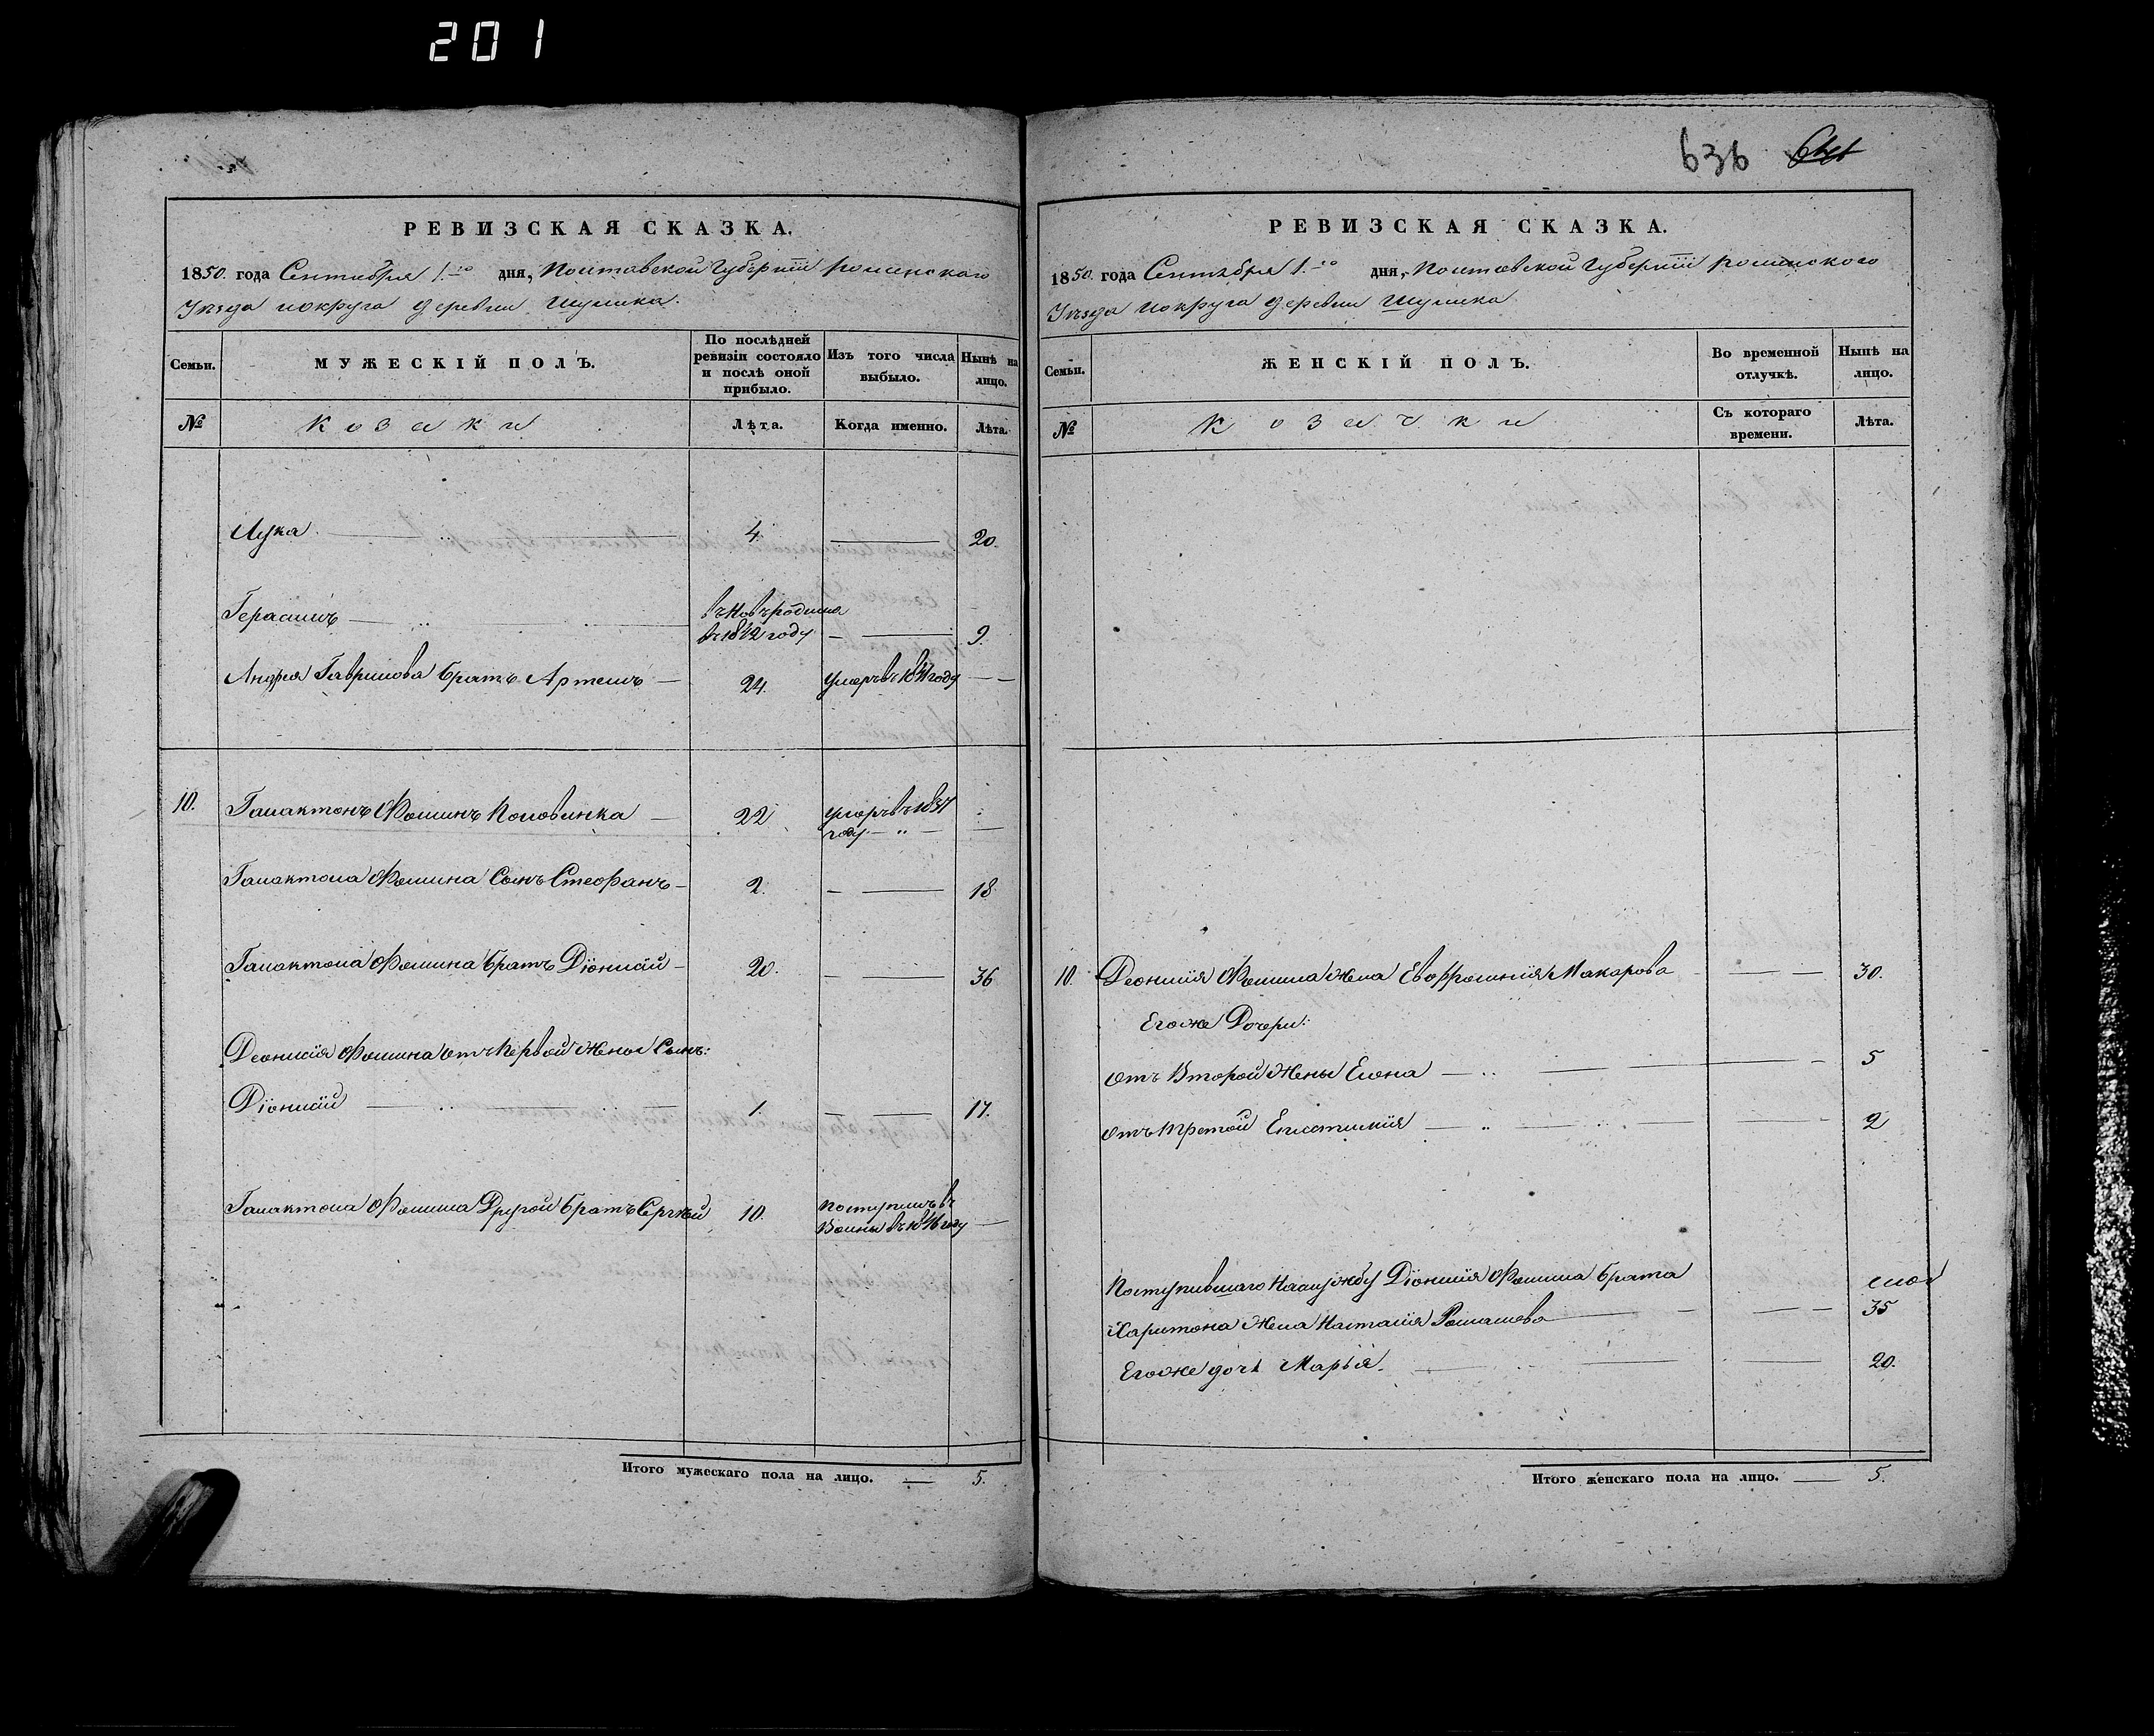 201
636
РЕВИЗСКАЯ СКАЗКА.
1850. года Сентября 1.го дня, Полтавской Губерніи Роменскаго
Уѣзда и округа деревни Шумска.
Семьи.
МУЖЕСКІЙ ПОЛЪ.
По послѣдней ревизіи состояло и послѣ оной прибыло.
Изъ того числа выбыло.
Нынѣ на лицо.
№
Козаки
Лѣта.
Когда именно.
Лѣта.
Лука 4 20.
Герасимъ въ 1842 году 9.
Андрея Гаврилова братъ Артемъ 24. умеръ въ году
10. Галактонъ Фоминъ Половинка 22 умеръ въ 1837 году
Галактона Фомина Сынъ Стефанъ 2. 18
Галактона Фомина братъ Діонисій 20. 36
Деонисія Фомина отъ Первой жены Сынъ:
Діонисій 1. 17.
Галактона Фомина Другой братъ Сергѣй 10. поступилъ въ
Воины въ 1846 году
Итого мужескаго пола на лицо. 5.
РЕВИЗСКАЯ СКАЗКА.
1850. года Сентября 1.го дня, Полтавской Губерніи Роменского
Уѣзда и округа деревни Шумска
Семьи.
ЖЕНСКІЙ ПОЛЪ.
Во временной отлучкѣ.
Нынѣ на лицо.
№
Козачки
Съ котораго времени.
Лѣта.
10. Деонисія Фомина жена Евофросинія Макарова 30.
Егоже Дочери:
отъ Второй Жены Елена 5
отъ третой 2
Поступившаго на службу Діонисія Фомина брата
Харитона жена Настасія Ромашова 35
Егоже дочь Марья 20.
Итого женскаго пола на лицо. 5.